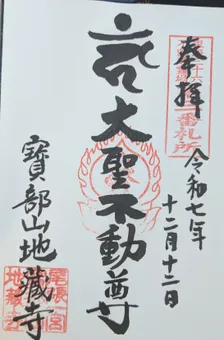 奉拝
令和七年
十二月十二日
大聖不動尊
寶部山地蔵寺